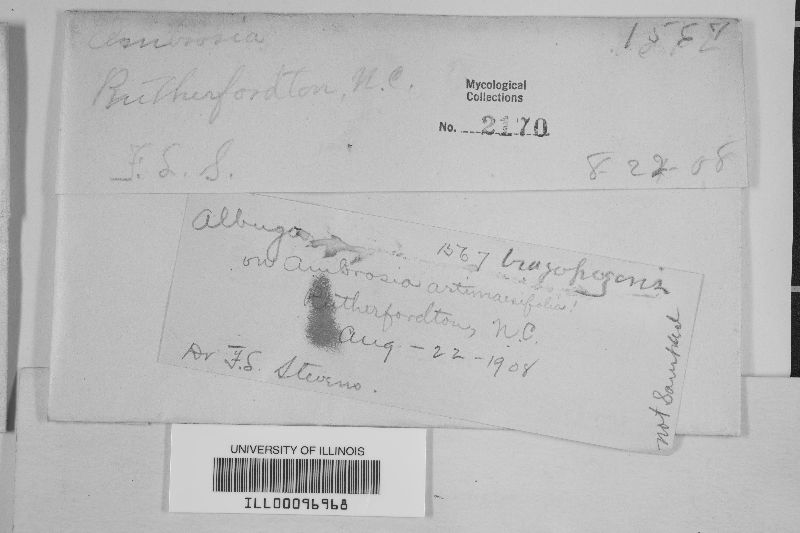 Ambrosia 1567
Rutherfordton, N.C.
Mycological
Collections
No. 2170
F. L. S. 8-22-08
Albugo 1567 tragopogonis
on Ambrosia artimaesifolia!
Rutherfordton, N.C.
Aug - 22 - 1908
Dr F.L. Stevens.
not Sampled
UNIVERSITY OF ILLINOIS
ILL00096968